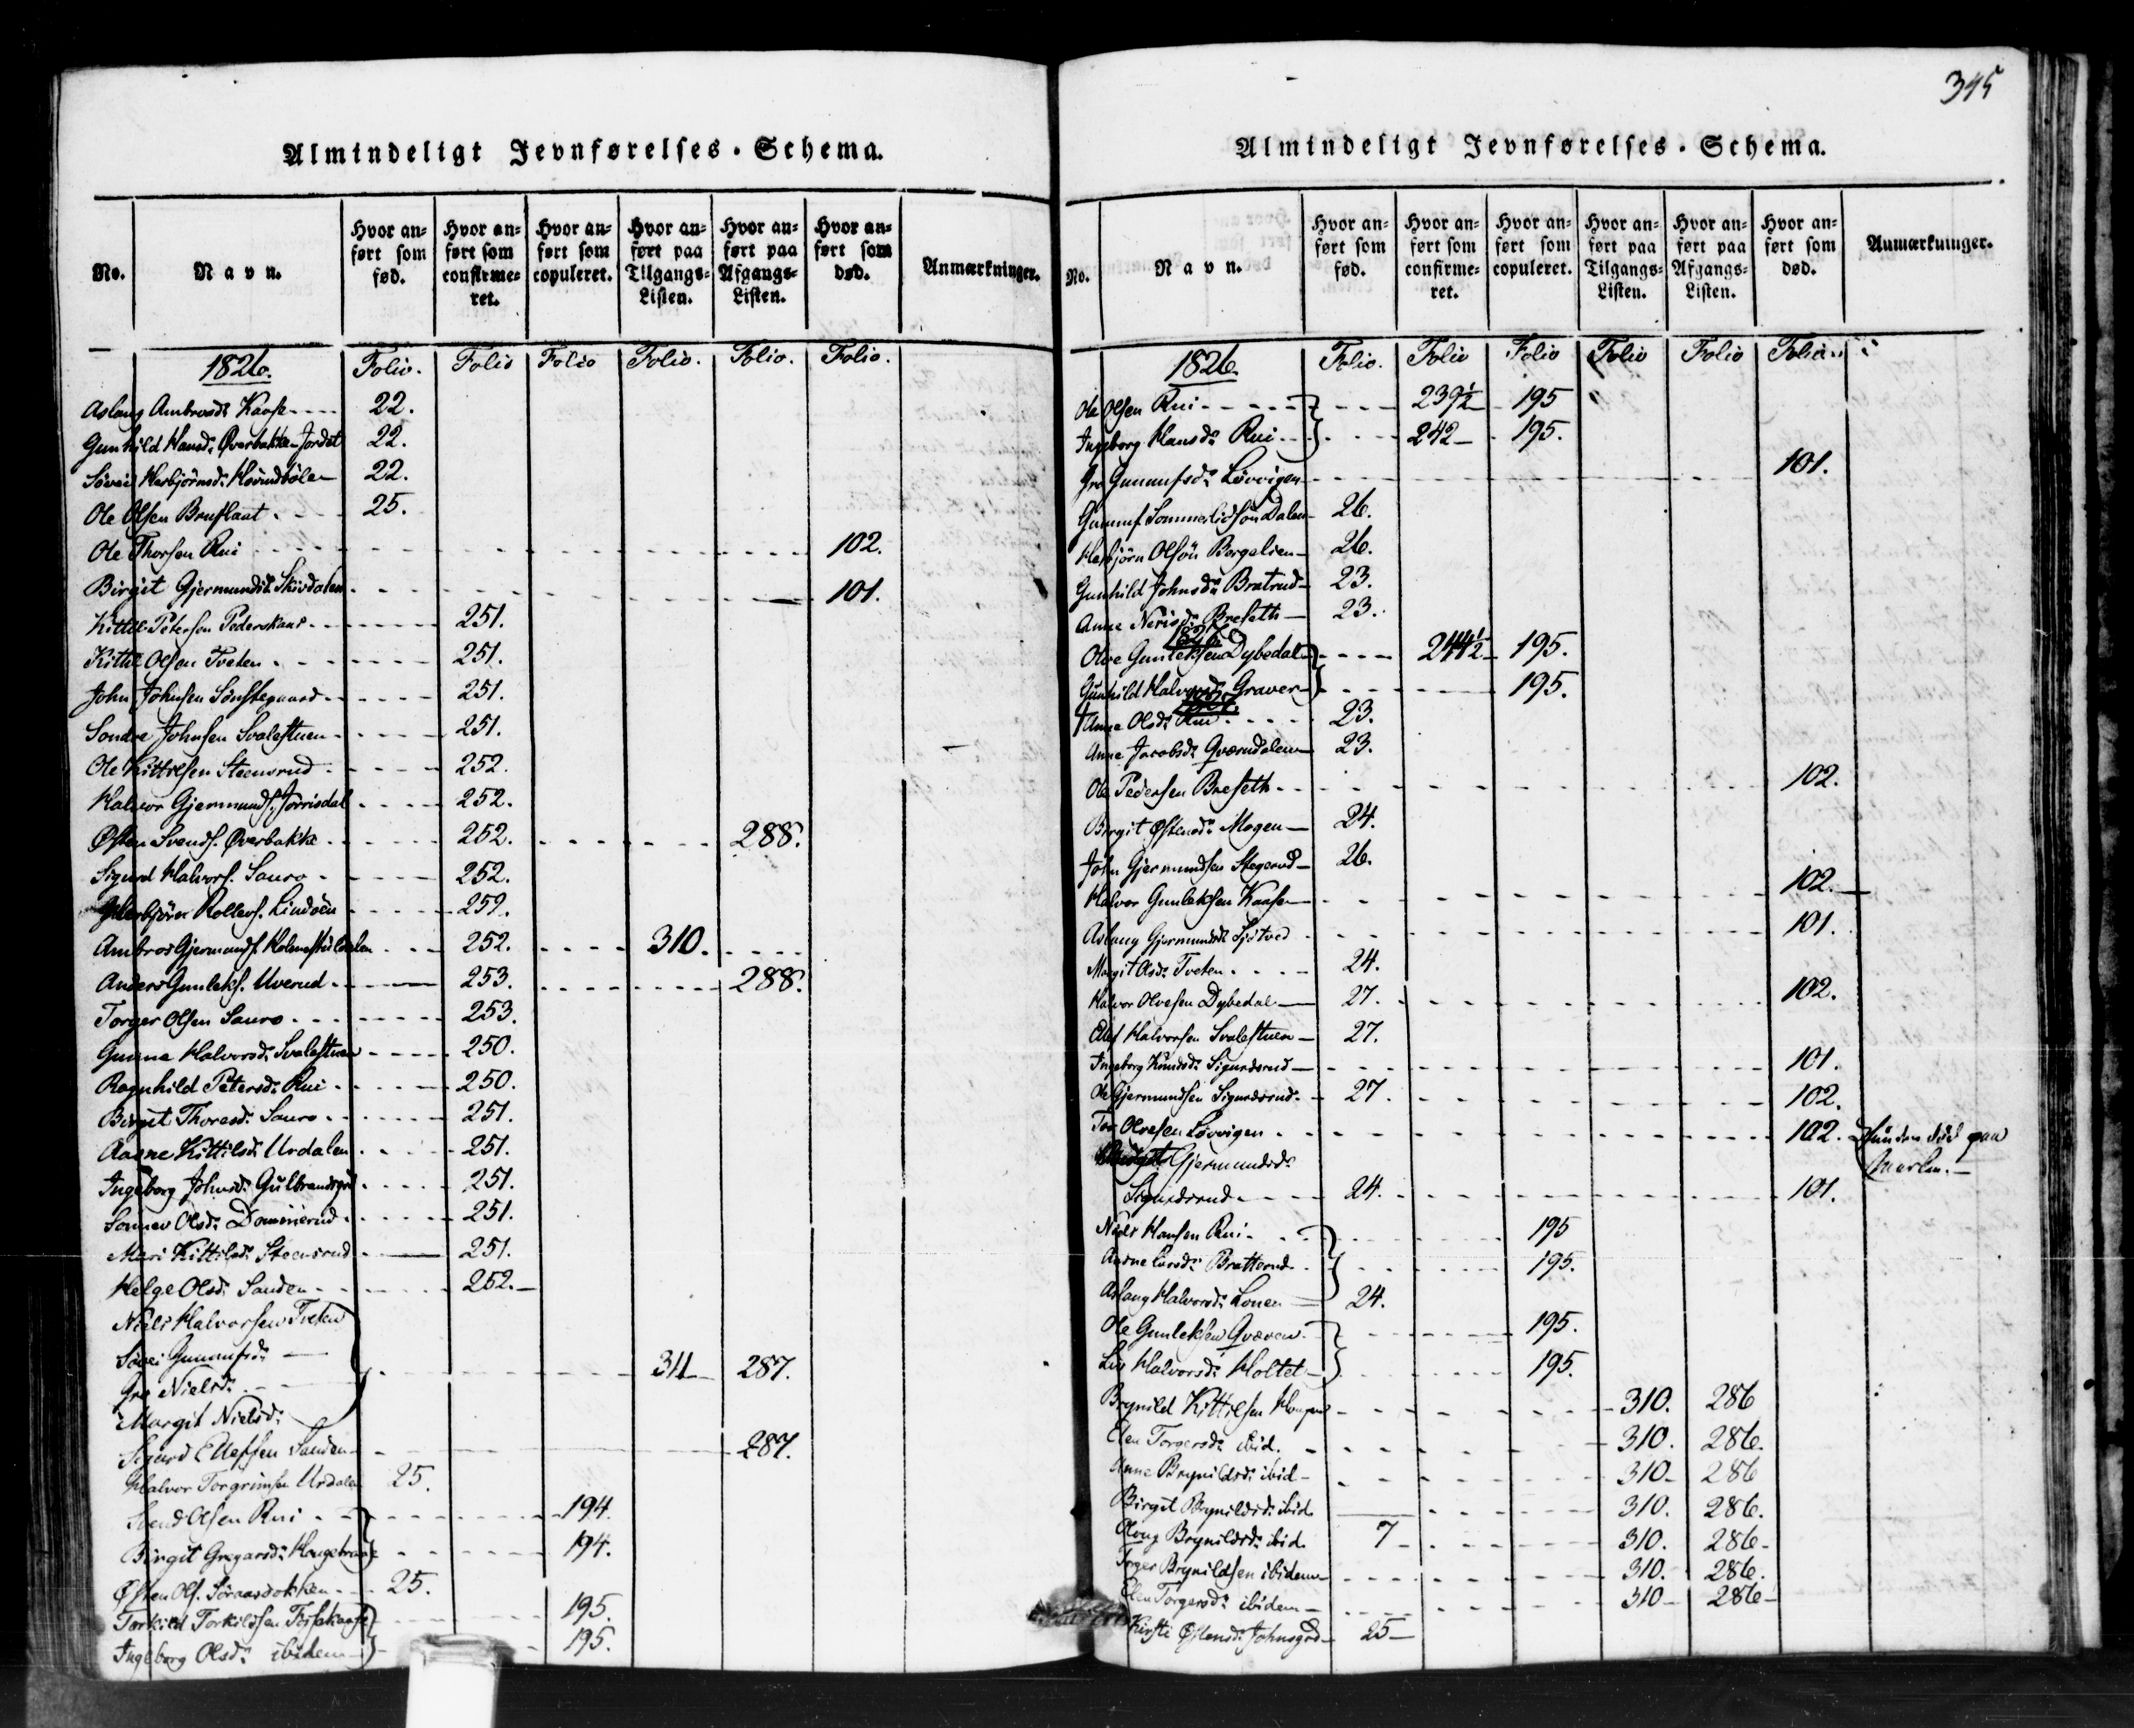 345
Almindeligt Jevnførelses-Schema.
No.
Navn.
Hvor anført som fød.
Hvor anført som confirmeret.
Hvor anført som copuleret.
Hvor anført paa Tilgangs-Listen.
Hvor anført paa Afgangs-Listen.
Hvor anført som død.
Anmærkninger.
1826. Folio. Folio Folio Folio. Folio. Folio.
Aslaug Ambrosd: Kaase 22.
Gunhild Hansd: Øverbakke-Jordet 22.
Herbjörnsd: 22.
Ole Olsen Bruflaat 25.
Ole Thorsen Rui 102.
Birgit Gjermundsd: Skirdalen 101.
Kittil Petersen 251.
Kittil Olsen Tveten 251.
John Johnsen Sønstegaard 251.
Sondre Johnsen Svalestuen 251.
Ole Kittilsen Steensrud 252.
Halvor Gjermunds. 252.
Østen Svends. Øverbakke 252. 288.
Sigurd Halvors. Sauro 252.
Herbjörn Rollevs. 259.
Ambros Gjermunds. 252. 310.
Anders Gunleks. Uverud 253. 288.
Torger Olsen Sauro 253.
Gunne Halvorsd: Svalestuen 250.
Ragnhild Petersd: Rui 250.
Birgit Thoresd: Sauro 251.
Aasne Kittilsd: Urdalen 251.
Ingeborg Johnsd: 251.
Sonnev Olsd: 251.
Mari Kittilsd: Steensrud 251.
Helge Olsd: Sanden 252.
Niels Halvorsen Tveten
Gunnufsd:
Gro Nielsd: 311 287.
Margit Nielsd:
Sigurd Ellefsen Sanden 287.
Halvor Torgrimsen Urdalen 25.
Svend Olsen Rui 194.
Birgit Gregarsd: 194.
Østen Ols. 25.
Torkild Torkildsen 195.
Ingeborg Olsd: ibidem 195.
Almindeligt Jevnførelses-Schema.
No.
Navn.
Hvor anført som fød.
Hvor anført som confirmeret.
Hvor anført som copuleret.
Hvor anført paa Tilgangs-Listen.
Hvor anført paa Afgangs-Listen.
Hvor anført som død.
Anmærkninger.
1826. Folio. Folio Folio Folio Folio Folio
Ole Olsen Rui 239½ 195
Ingeborg Hansd: Rui 242 195.
Gro Gunnufsd: Løvvigen 101.
Gunnuf Dalen 26.
Herbjörn Olsön Borgalien 26.
Gunhild Johnsd: Bratrud 23.
Anne Nerisd: Breseth 23.
1826
Olve Gunleksen Dybedal 244½ 195.
Gunhild Halvorsd: Graver 195.
Anne Olsd: Rui 23.
Anne Jacobsd: Qværndalen 23.
Ole Pedersen Breseth 102.
Birgit Østensd: Mogen 24.
John Gjermundsen Stegerud 26.
Halvor Gunleksen Kaase 102.
Aslaug Gjermundsd: 101.
Margit Olsd: Tveten 24.
Halvor Olvesen Dybedal 27. 102.
Halvorsen Svalestuen 27.
Ingeborg Knudsd: Sigurdsrud 101.
Ole Gjermundsen Sigurdsrud 27. 102.
Tor Olvesen Løvvigen 102. paa
Birgit Gjermundsd:
Sigurdsrud 24. 101.
Niels Hansen Rui 195
Aasne Larsd: Bratterud 195.
Aslaug Halvorsd: Lonen 24.
Ole Gunleksen Qvæven 195.
Liv Halvorsd: Holtet 195.
Brynild Kittilsen 310. 286
Elen Torgersd: ibid. 310. 286.
Anne Brynildsd: ibid 310 286
Birgit Brynildsd: ibid. 310. 286.
Brynildsd: ibid. 7 310. 286
Torger Brynildsen ibidem 310. 286.
Elen Torgersd: ibidem 310 286
Kirsti Østensd: Johnsgrd 25